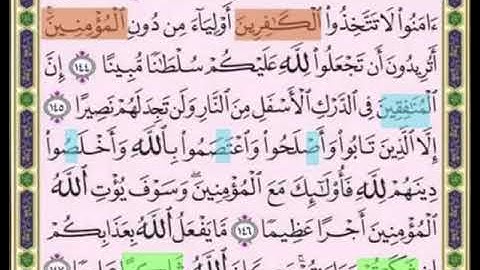 ءَامَنُوا۟ لَا تَتَّخِذُوا۟ ٱلْكَـٰفِرِينَ أَوْلِيَآءَ مِن دُونِ ٱلْمُؤْمِنِينَ ۚ
أَتُرِيدُونَ أَن تَجْعَلُوا۟ لِلَّهِ عَلَيْكُمْ سُلْطَـٰنًا مُّبِينًا ١٤٤ إِنَّ
ٱلْمُنَـٰفِقِينَ فِى ٱلدَّرْكِ ٱلْأَسْفَلِ مِنَ ٱلنَّارِ وَلَن تَجِدَ لَهُمْ نَصِيرًا ١٤٥
إِلَّا ٱلَّذِينَ تَابُوا۟ وَأَصْلَحُوا۟ وَٱعْتَصَمُوا۟ بِٱللَّهِ وَأَخْلَصُوا۟
دِينَهُمْ لِلَّهِ فَأُو۟لَـٰٓئِكَ مَعَ ٱلْمُؤْمِنِينَ ۖ وَسَوْفَ يُؤْتِ ٱللَّهُ
ٱلْمُؤْمِنِينَ أَجْرًا عَظِيمًا ١٤٦ مَّا يَفْعَلُ ٱللَّهُ بِعَذَابِكُمْ